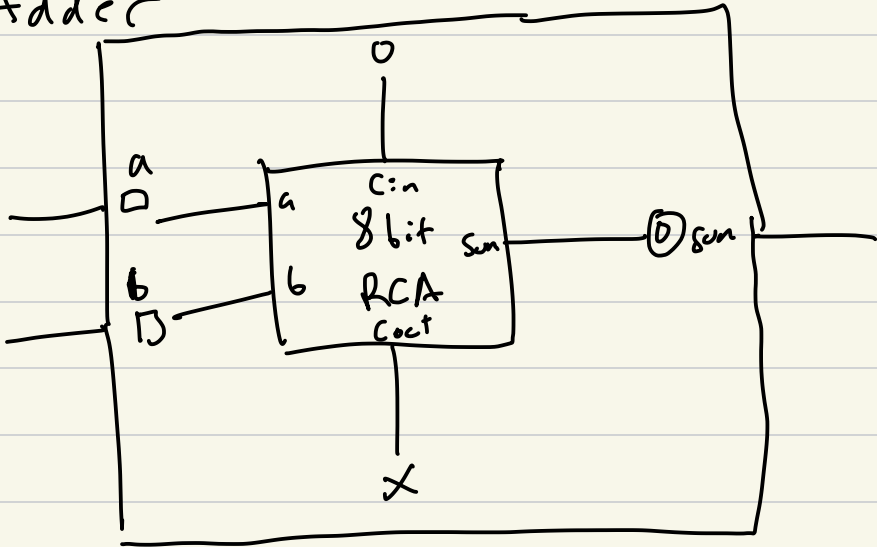 Adder
0
a
Cin
a
8 bit
Sum
0 sum
b
b
RCA
Cout
X